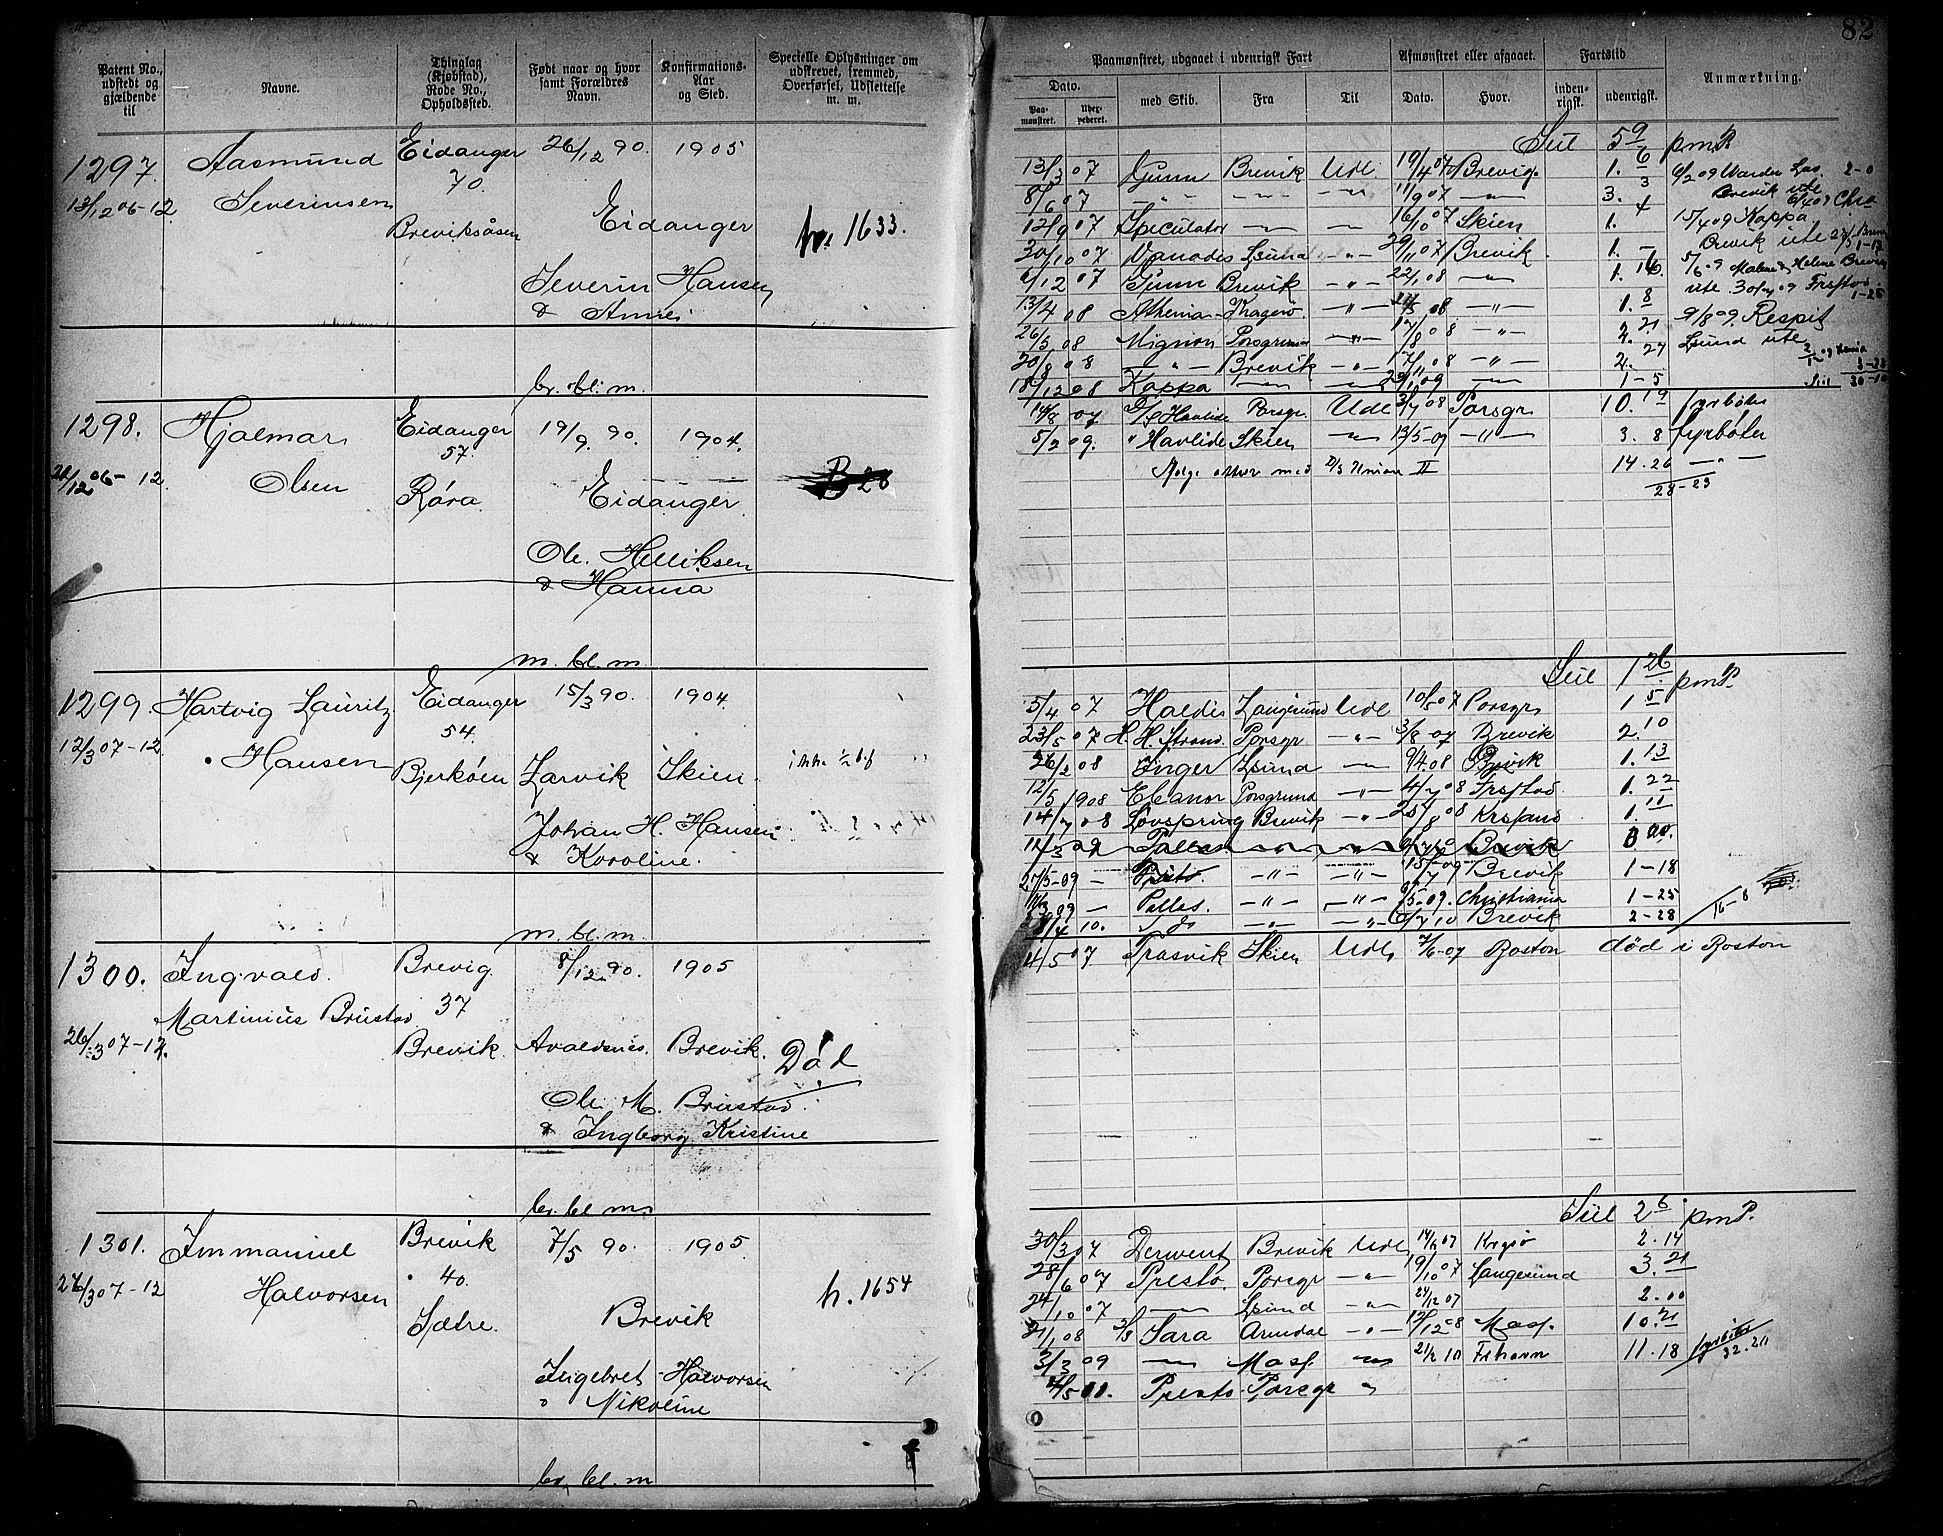 82
Patent No., udstedt og gjældende til
Navne.
Thinglag (Kjøbstad), Rode No., Opholdssted.
Født naar og hvor samt Forældres Navn.
Konfirmations-Aar og Sted.
Specielle Oplysninger om udskrevet, fremmed, Overførsel, Udslettelse m. m.
1297. Aasmund Eidanger 26/12 90. 1905
70.
13/12 06-12 Severinsen
Breviksåsen Eidanger hr. 1633.
Severin Hansen
& Anne
br. bl. m.
1298. Hjalmar Eidanger 19/9 90. 1904.
57.
06-12. Olsen Røra Eidanger B 28
Ole Helliksen
& Hanna
m. bl. m.
1299. Hartvig Lauritz Eidanger 15/3 90. 1904
54.
12/3 07-12 Hansen Bjerkøen Larvik Skien
Johan H. Hansen
& Karoline.
m. bl. m.
1300. Ingvald Brevig 8/12 90. 1905
Martinius Brustad 37
26/3 07-12. Brevik Avaldsnes. Brevik. Død
Ole M. Brustad.
& Ingborg Kristine
br. bl m.
1301. Immanuel Brevik 7/5 90. 1905.
40.
27/3 07-12 Halvorsen Sætre. Brevik h. 1654
Ingebret Halvorsen
& Nikoline
br. bl. m
Paamønstret, udgaaet i udenrigsk Fart
Afmønstret eller afgaaet.
Fartstid
Anmærkning.
Dato.
Paa-mønstret.
Udex-pederet.
med Skib.
Fra
Til
Dato.
Hvor.
inden-rigsk.
udenrigsk.
Seil 5 9 pmP.
13/3 07 Gunn Brevik Udl 19/4 07 Brevig. 1. 6
8/6 07 — " — — " — 11/9 07 — " — 3. 3
12/9 07 Speculator — " — — " — 16/10 07 Skien 1. 4
30/10 07 Vanadis Lsund — " — 29/11 07 Brevik 1. —
6/12 07 Gunn Brevik — " — 22/1 08 — " — 1. 16
13/4 08 Athenia Kragerø — " — 08 — " — 1. 8
26/5 08 Mignon Porsgrund — " — 17/8 08 — " — 2. 21
20/8 08 — " — Brevik — " — 17/11 08 — " — 2. 27
18/12 08 Kappa — " — — " — 09 — " — 1-5
6/2 09 Varden Las. 2-0
Brevik ute 6/4 09 Chra
15/4 09 Kappa
Brevik ute
5/6 09 Malene Helene Brevik
ute 30/7 09 Frstad. 1-25
9/8 09. Respit
Lsund ute
Seil 30-10
07 D/S Havlide Porsgr. Udl 08 Porsgr 10. 19 fyrbøter
5/2 09. " Havlide Skien — " — 13/5-09 — " — 3. 8 fyrbøter
D/S Union II 14.26 — " —
28-23
Seil 1 26 pmP.
5/4 07 Haldis Langesund Udl 10/5 07 Porsgr 1 5
23/5 07 H. H. Strand. Porsgr — " — 3/8 07 Brevik 2. 10
26/2 08 Inger Lsund — " — 9/4 08 Brevik 1. 13
12/5 1908 Eleanor Porsgrund — " — 4/7 08 Frstad. 1. 22
14/7 08 Lovspring Brevik — " — 25/8 08 Krsand 1. 11
09 Pallas Brevik
27/5-09 — Presto. — " — — " — 15/7 09 Brevik 1-18
09 — Pallas. — " — — " — 9/5-09. Christiania 1-25
10. — " — — " — 10 Brevik 2-28 16-8
4/5 07 Frasvik Skien Udl. 7/6-07 Boston død i Boston
Seil 2 6 pmP.
30/3 07 Derwent Brevik Udl 14/6 07 Krgrø 2.14
28/6 07 Presto. Porsgr — " — 19/10 07 Langesund 3. 21
24/10 07 — " — Lsund — " — 24/12 07 2.00
21/1 08 D/S Sara Arendal — " — 12/12 08 Masf. 10. 21
3/3 09 — " — Masf. — " — 21/2 10 Frhavn 11.18 fyrbøter 32.20
11. Presto Porsgr "